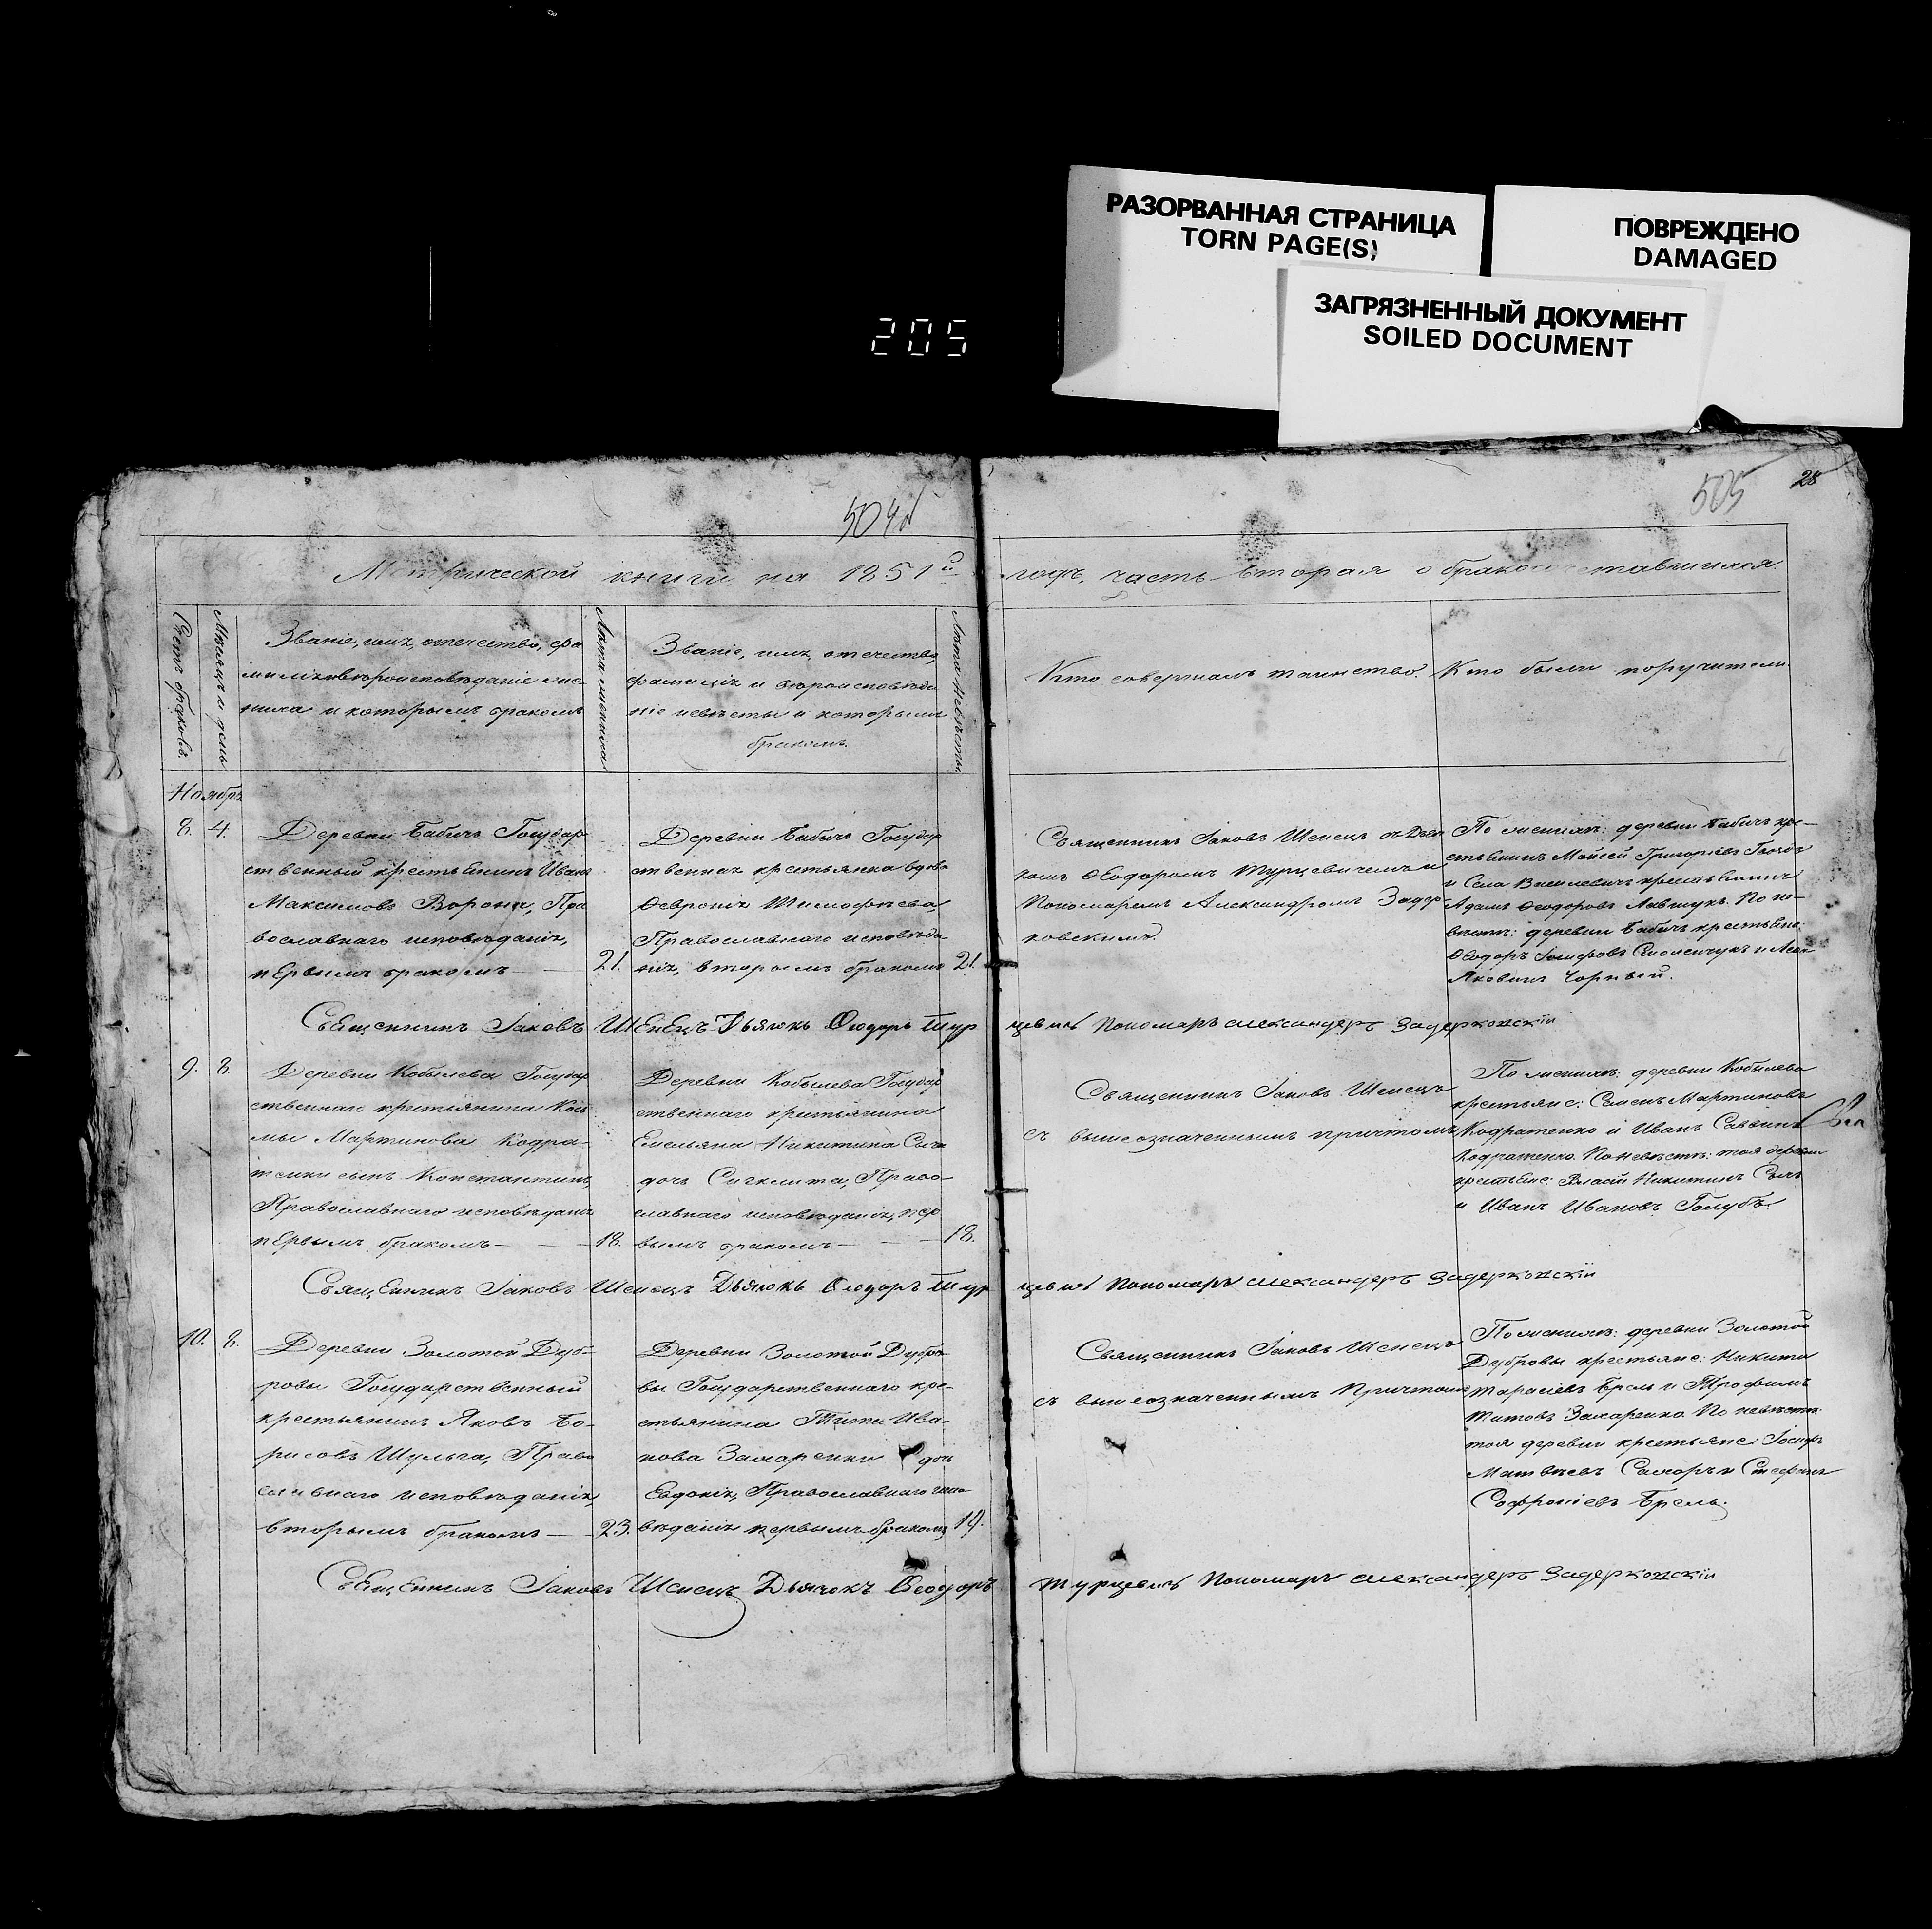 РАЗОРВАННАЯ СТРАНИЦА
TORN PAGE(S)
ПОВРЕЖДЕНО
DAMAGED
ЗАГРЯЗНЕННЫЙ ДОКУМЕНТ
SOILED DOCUMENT
205
504
505
28
Метрической книги на 1851й
годъ, часть вторая о бракосочетавшихся.
Счетъ браковъ.
Мѣсяцъ и день
Званіе, имя, отечество, фа
милія и вѣроисповѣданіе же-
ниха и которымъ бракомъ
Лѣта жениха
Званіе, имя, отечество,
фамилія и вѣроисповѣда
ніе невѣсты и которымъ
бракомъ.
Лѣта невѣсты.
Кто совершалъ таинство.
Кто были поручители
Ноябрь
8. 4.
Деревни Бабичъ Государ
ственный крестьянинъ Иванъ
Максимовъ Ворона, Пра
вославнаго исповѣданія,
первымъ бракомъ — 21.
Деревни Бабичъ Государ
ственная крестьянка вдова
Ѳевронія Тимофѣева,
Православнаго исповѣда-
нія, вторымъ бракомъ 21.
Священникъ Іаковъ Шенецъ съ Дьяч
комъ Ѳеодоромъ Турцевичемъ и
Пономаремъ Александромъ Задер
ковскимъ.
По женихѣ: деревни Бабичъ кре-
стьянинъ Мойсей Григорьевъ
и Села Василевичъ крестьянинъ
Адамъ Ѳеодоровъ Левшукъ. По не-
вѣстѣ: деревни Бабичъ крестьяне:
Ѳеодоръ Іосифовъ
Яковлевъ Чорный.
Священникъ Іаковъ Шенецъ Дьячокъ Ѳеодоръ Тур
цевичъ Пономарь Александеръ Задерковскій
9. 8.
Деревни Кобылева Государ
ственнаго крестьянина Кось
мы Мартинова Кодра-
тенки сынъ Константинъ,
Православнаго исповѣданія
первымъ бракомъ — 18.
Деревни Кобылева Государ
ственнаго крестьянина
Емельяна Никитина Сыча
дочь Сигклита, Право-
славнаго исповѣданія, пер
вымъ бракомъ — 18.
Священникъ Іаковъ Шенецъ
съ вышеозначеннымъ причтомъ
По женихѣ: деревни Кобылева
крестьяне: Семенъ Мартиновъ
Кодратенко и Иванъ Саввинъ
Кодратенко. По невѣстѣ: тоя деревни
крестьяне: Власій Никитинъ Сычъ
и Иванъ Ивановъ Голубъ.
Священникъ Іаковъ Шенецъ Дьячокъ Ѳеодоръ Тур
цевичъ Пономарь Александеръ Задерковскій
10. 8.
Деревни Золотой Дуб-
ровы Государственный
крестьянинъ Яковъ Бо-
рисовъ Шульга, Право
славнаго исповѣданія,
вторымъ бракомъ — 23.
Деревни Золотой Дубро-
вы Государственнаго кре-
стьянина Тита Ива-
нова Захаренки дочь
Евдокія, Православнаго испо
вѣданія первымъ бракомъ, 19.
Священникъ Іаковъ Шенецъ
съ вышеозначеннымъ Причтомъ
По женихѣ: деревни Золотой
Дубровы крестьяне: Никита
Тарасіевъ Брель и Трофимъ
Титовъ Захаренко. По невѣстѣ:
тоя деревни крестьяне: Іосифъ
Матвѣевъ и Стефанъ
Софроніевъ Брель.
Священникъ Іаковъ Шенецъ Дьячокъ Ѳеодоръ
Турцевичъ Пономарь Александеръ Задерковскій